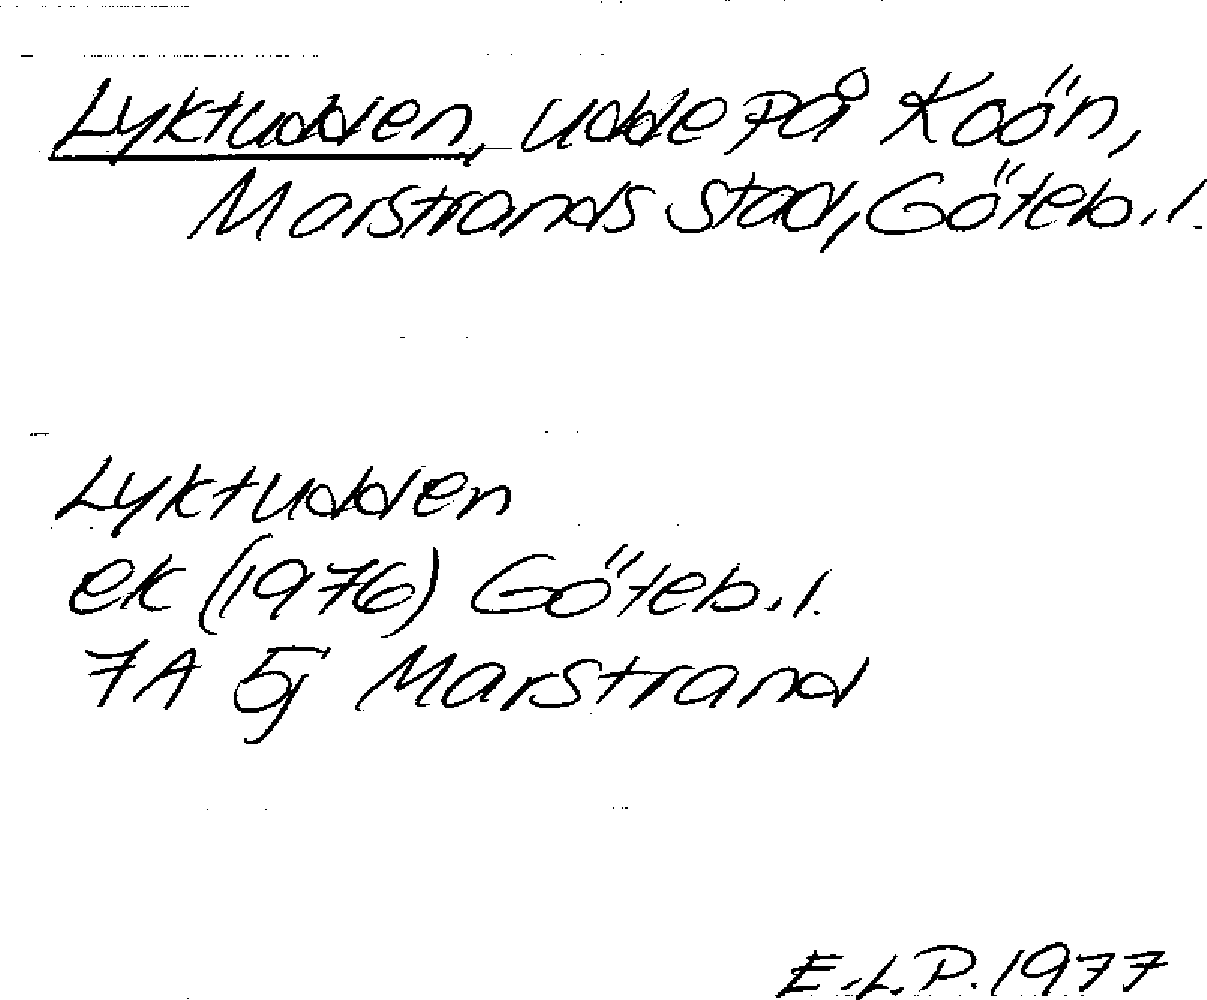 Lyktudden, udde på Koön,
Marstrands stad, Göteb.l.
Lyktudden
ek (1976) Göteb.l.
7A 5j Marstrand
E.L.P. 1977